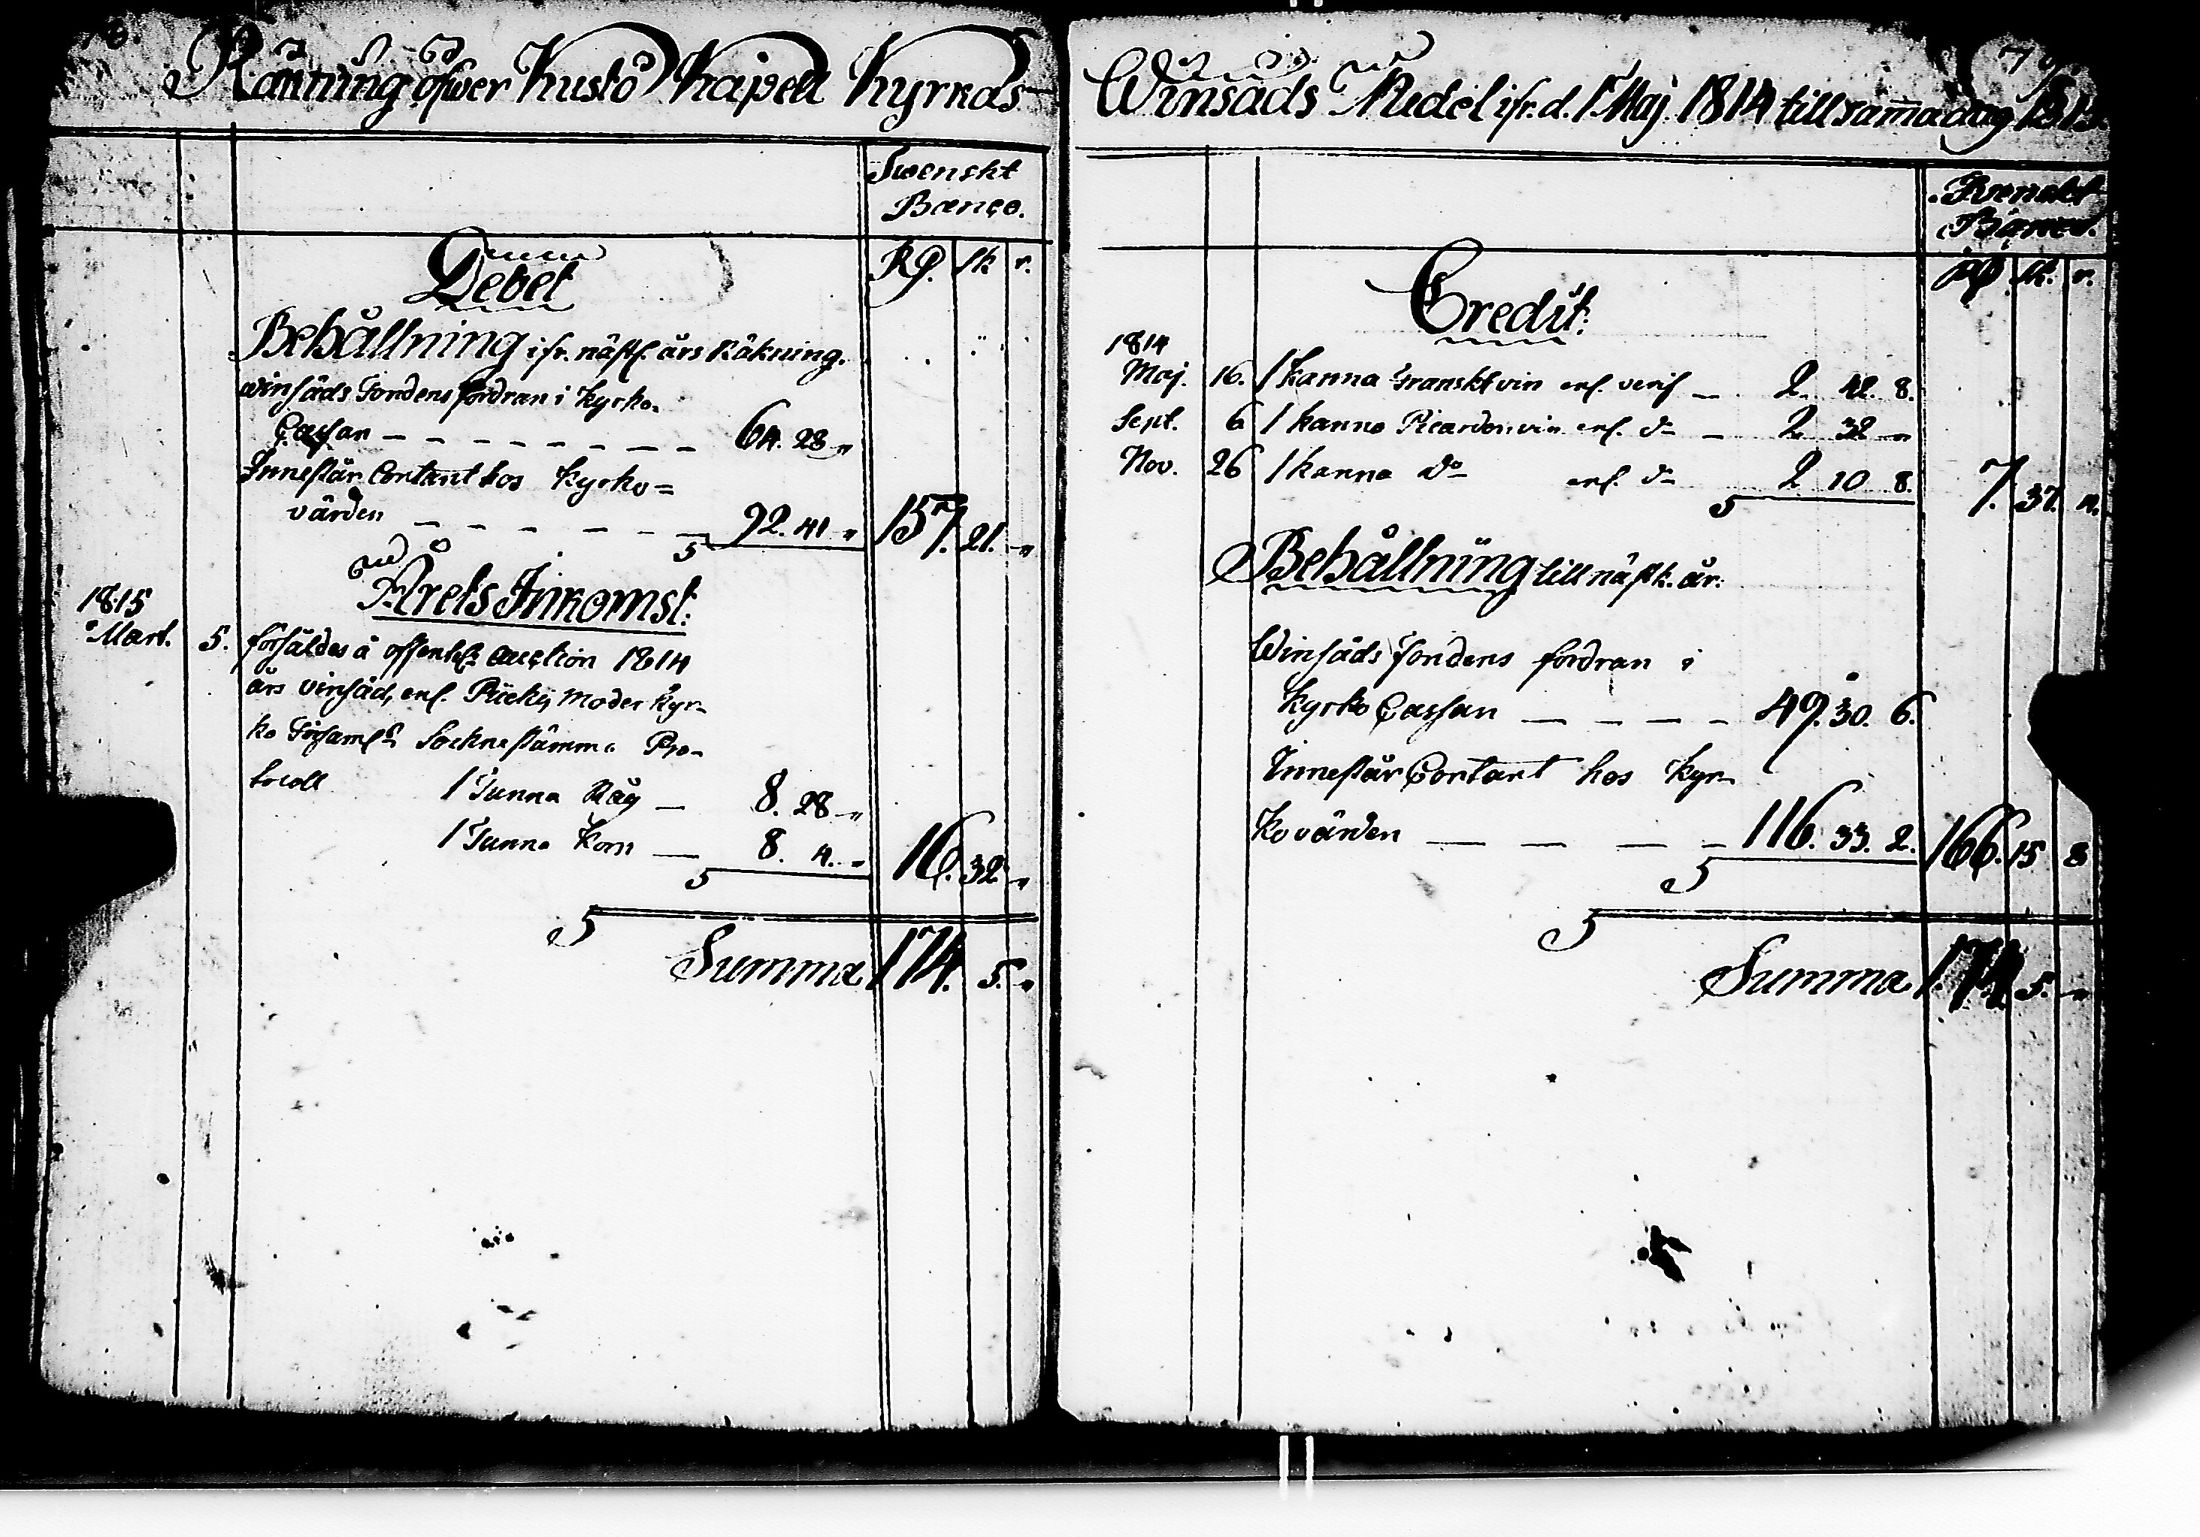 Räkning öfwer Kustö Kapell Kyrkas
Swenskt
Banco.
Rd. sk r.
Debet
Behållning ifr. nästf. års Räkning.
Winsäds Fondens fordran i Kyrko-
Cassan — — — — — — — — 64. 28 „
Innestår Contant hos Kyrko=
värden — — — — — — 92. 41 „ 157. 21. „
Årets Inkomst:
1815
Mart. 5. försåldes å offentel. auction 1814
års vinsäd, enl. Piickis Moder Kyr-
ko Församls Sockne stämmo Pro-
tocoll 1 Tunna Råg — 8. 28 „
1 Tunna Korn — 8. 4. „ 16. 32 „
Summa 174. 5. „
79.
Winsäds Medel ifr. d. 1 Maj. 1814 till samma dag 1815.
Swenskt
Banco.
Rd. sk. r.
Credit:
1814
Maj. 16. 1 Kanna Franskt vin enl. verif — 2. 42. 8.
Sept. 6 1 Kanna Picardon vin enl. do — 2 32 „
Nov. 26 1 Kanna do enl. do 2 10 8. 7. 37. 4.
Behållning till nästk. år:
Winsäds Fondens fordran i
Kyrko Cassan — — — — 49. 30. 6.
Innestår Contant hos Kyr-
kovärden — — — — 116. 33. 2. 166. 15 8
Summa 174 5. „